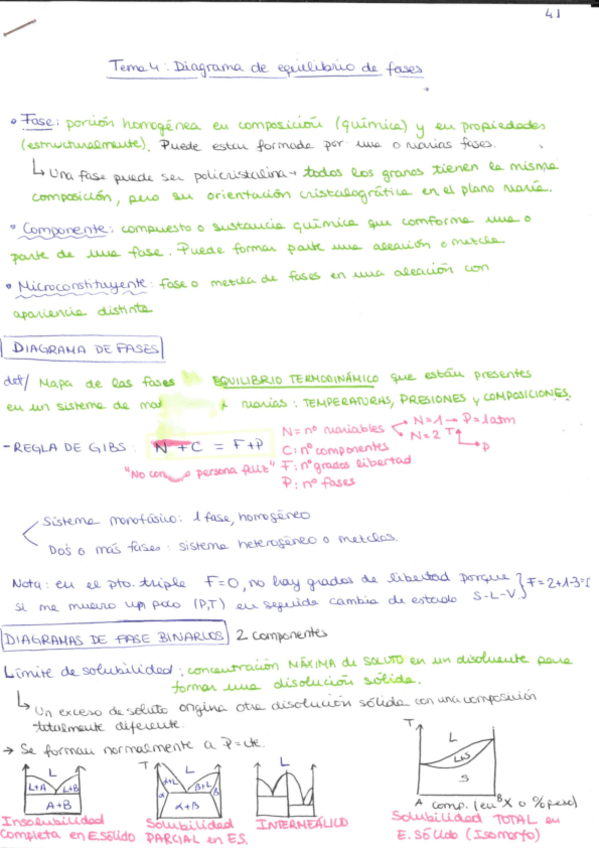 41
Tema 4: Diagrama de equilibrio de fases
• Fase: porción homogénea en composición (química) y en propiedades
(estructuralmente). Puede estar formada por una o varias fases.
↳ Una fase puede ser policristalina → todos los granos tienen la misma
composición, pero su orientación cristalográfica en el plano varía.
• Componente: compuesto o sustancia química que comforma una o
parte de una fase. Puede formar parte una aleación o mezcla
• Microconstituyente: fase o mezcla de fases en una aleación con
apariencia distinta
DIAGRAMA DE FASES
def/ Mapa de las fases EQUILIBRIO TERMODINÁMICO que están presentes
en un sistema de mat varias: TEMPERATURAS, PRESIONES y COMPOSICIONES.
- REGLA DE GIBS: N + C = F + P
"No con persona feliz"
N = nº variables
N=1 → P=1atm
N=2 T P
C: nº componentes
F: nº grados libertad
P: nº fases
Sistema monofásico: 1 fase, homogéneo
Dos o más fases: sistema heterogéneo o mezclas.
Nota: en el pto. triple F=0, no hay grados de libertad porque
si me muevo un poco (P,T) en seguida cambia de estado S-L-V. } F=2+1-3=
DIAGRAMAS DE FASE BINARIOS 2 componentes
Límite de solubilidad: concentración MÁXIMA de SOLUTO en un disolvente para
formar una disolución sólida.
↳ Un exceso de soluto origina otra disolución sólida con una composición
totalmente diferente.
→ Se forman normalmente a P=cte.
L
L+A L+B
A+B
Insolubilidad
completa en E.sólido
T
L
α+L β+L
α β
α+β
Solubilidad
PARCIAL en ES.
L
INTERMEÁLICO
T
L
L+S
S
A comp. (en X o % peso) B
Solubilidad TOTAL en
E. Sólido (Isomorfo)